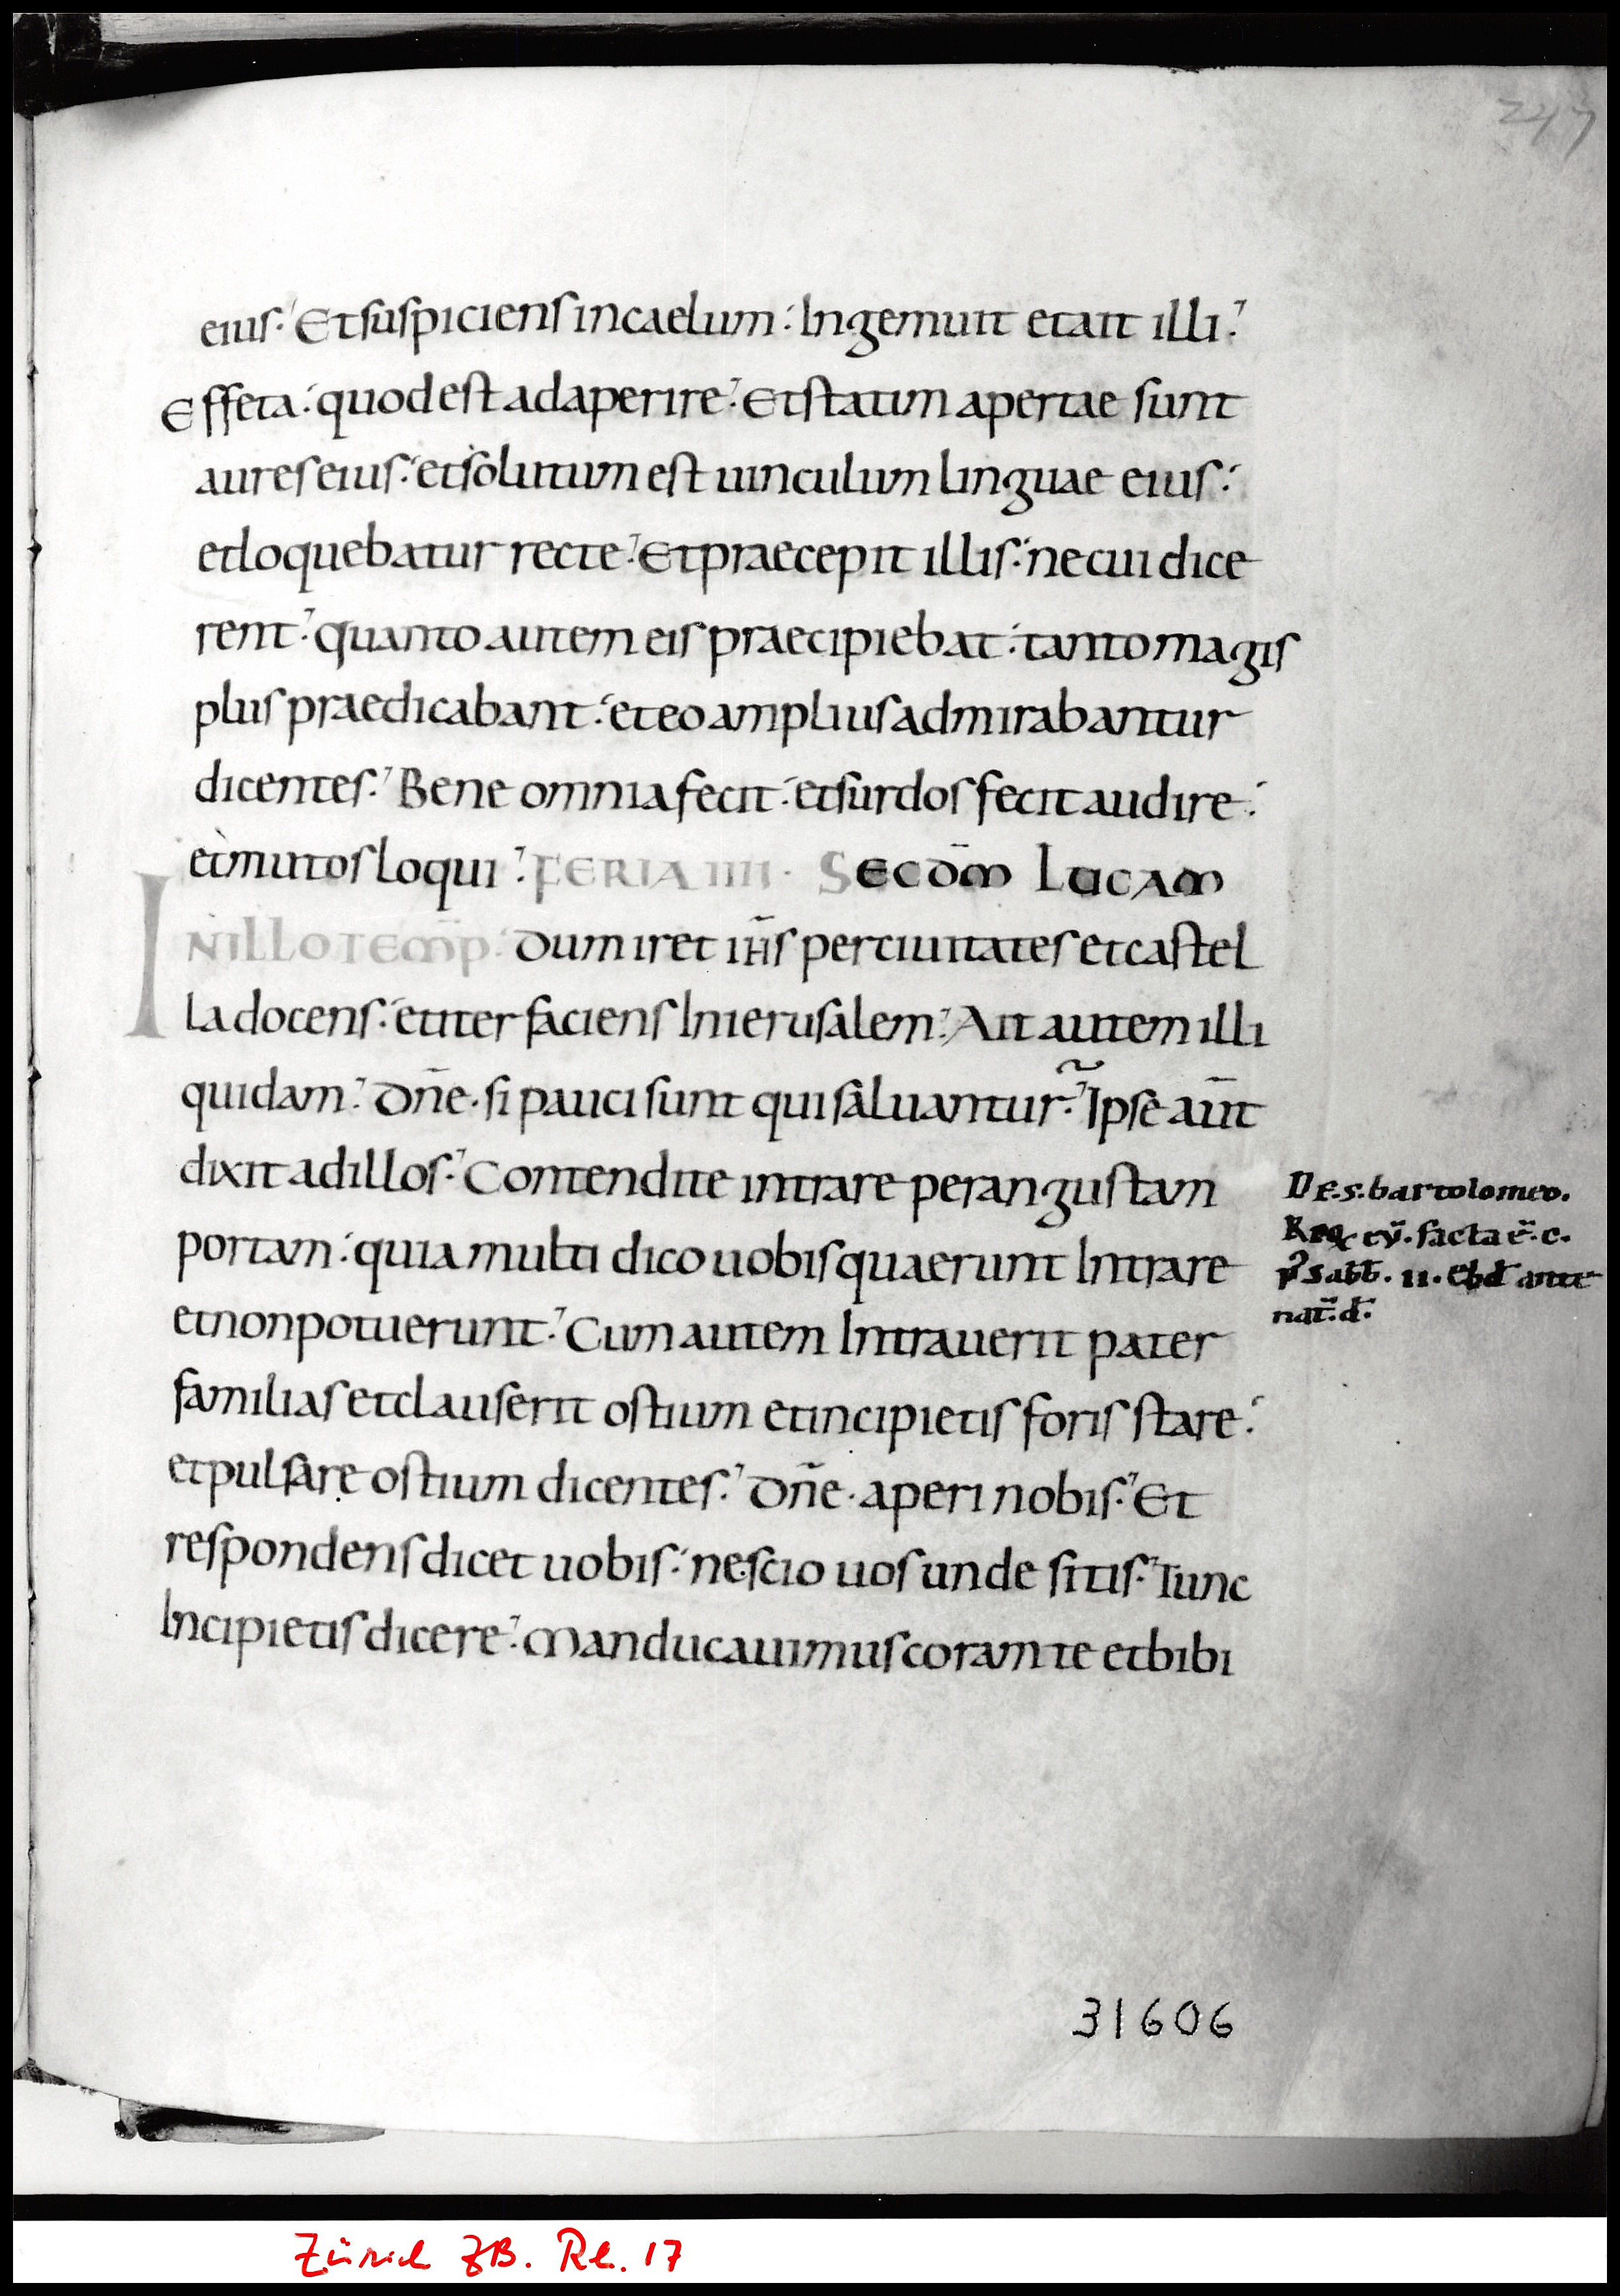 247
eius. Et suspiciens in caelum. Ingemuit et ait illi.
Effeta. quod est adaperire. Et statim apertae sunt
aures eius. et solutum est uinculum linguae eius.
et loquebatur recte. Et praecepit illis. ne cui dice
rent. quanto autem eis praecipiebat. tanto magis
plus praedicabant. et eo amplius admirabantur
dicentes. Bene omnia fecit. et surdos fecit audire.
et mutos loqui. FERIA IIII. SECDM̄ LUCAM
IN ILLO TEMP̄. Dum iret ih̄s per ciuitates et castel
la docens. et iter faciens In ierusalem. Ait autem illi
quidam. Dn̄e. si pauci sunt qui saluantur. Ipse aūt
dixit ad illos. Contendite intrare per angustam
portam. quia multi dico uobis quaerunt Intrare
et non potuerunt. Cum autem Intrauerit pater
familias et clauserit ostium et incipietis foris stare.
et pulsare ostium dicentes. Dn̄e. aperi nobis. Et
respondens dicet uobis. nescio uos unde sitis. Tunc
Incipietis dicere. Manducauimus coram te et bibi
DE. s. bartolomeo.
facta ē. c.
sabb̄. II. ebd̄ ante
nat̄. d̄.
31606
Zürich ZB. Rh. 17